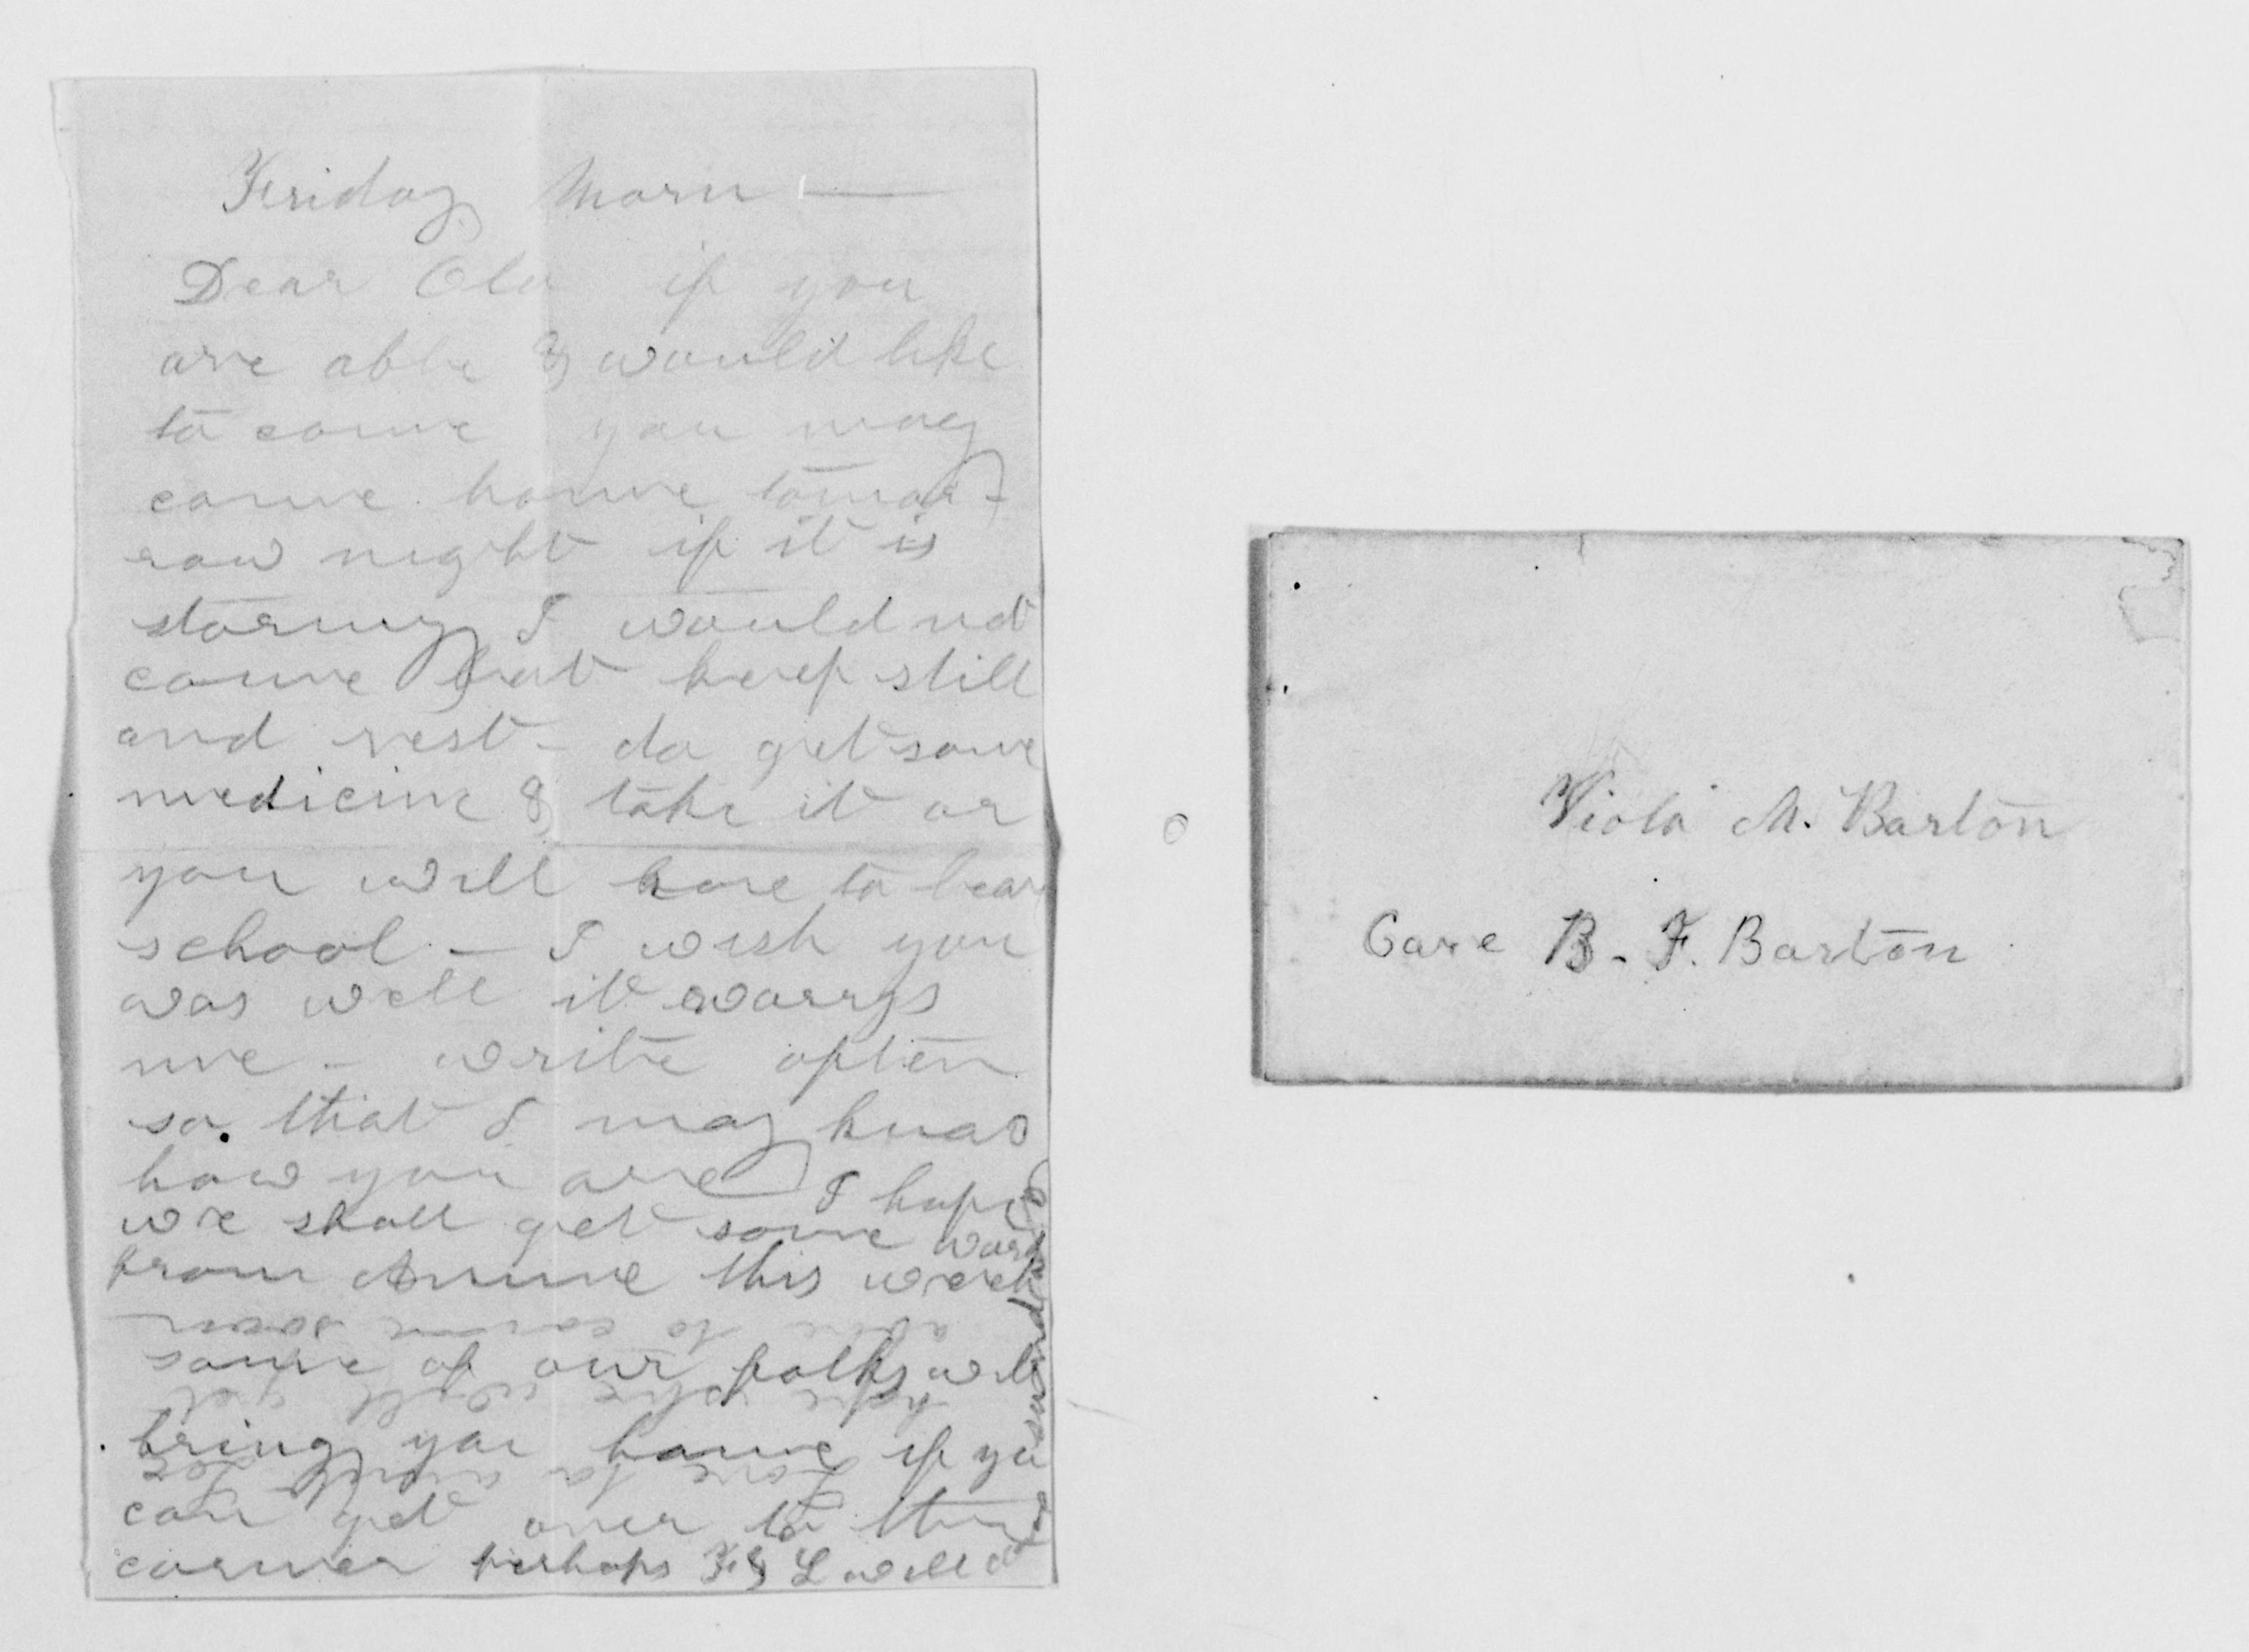 Friday Morn —
Dear Ola if you
are able & would like
to come you may
come home tomor-
row night if it is
stormy I would not
come but keep still
and rest - do get some
medicine & take it or
you will have to leav
school - I wish you
was well it worrys
me - write often
so that I may know
how you are I hope
we shall get some word
from Annie this week
some of our folks will
bring you home if you
can get over to the
corner perhaps F & L will
Love to
hope she will get
able to come soon
Viola M. Barton
Care B. F. Barton